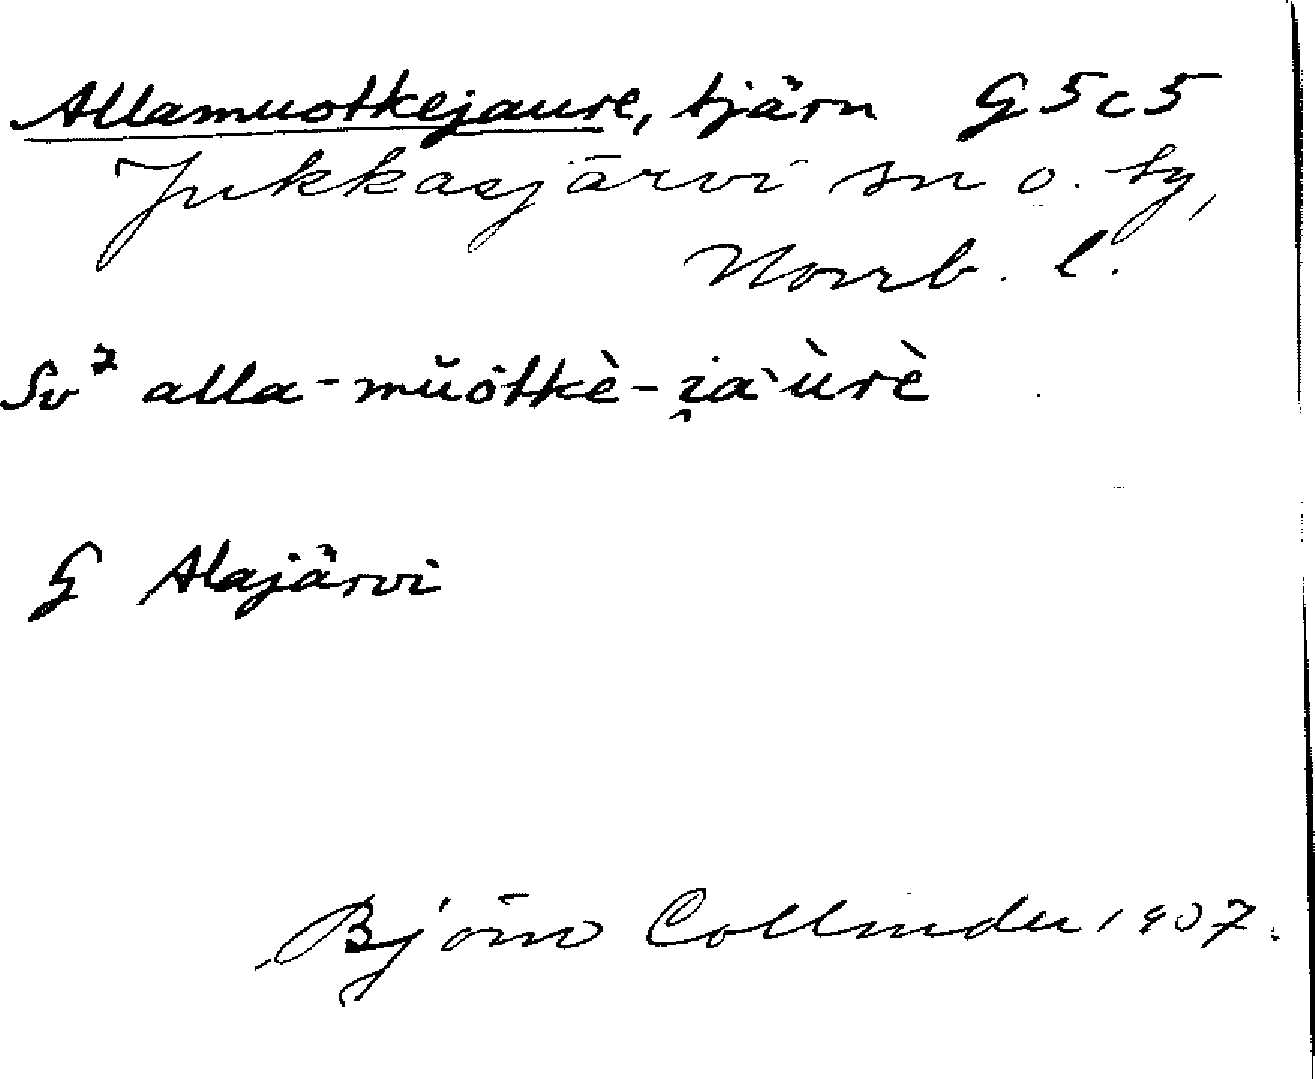 Allamuotkejaure, tjärn G 5 c 5
Jukkasjärvi sn o. ty,
Norrb. l.
Sv² alla-mŭòtkè-i̯a`ùrè
G Alajärvi
Björn Collinder 1907.